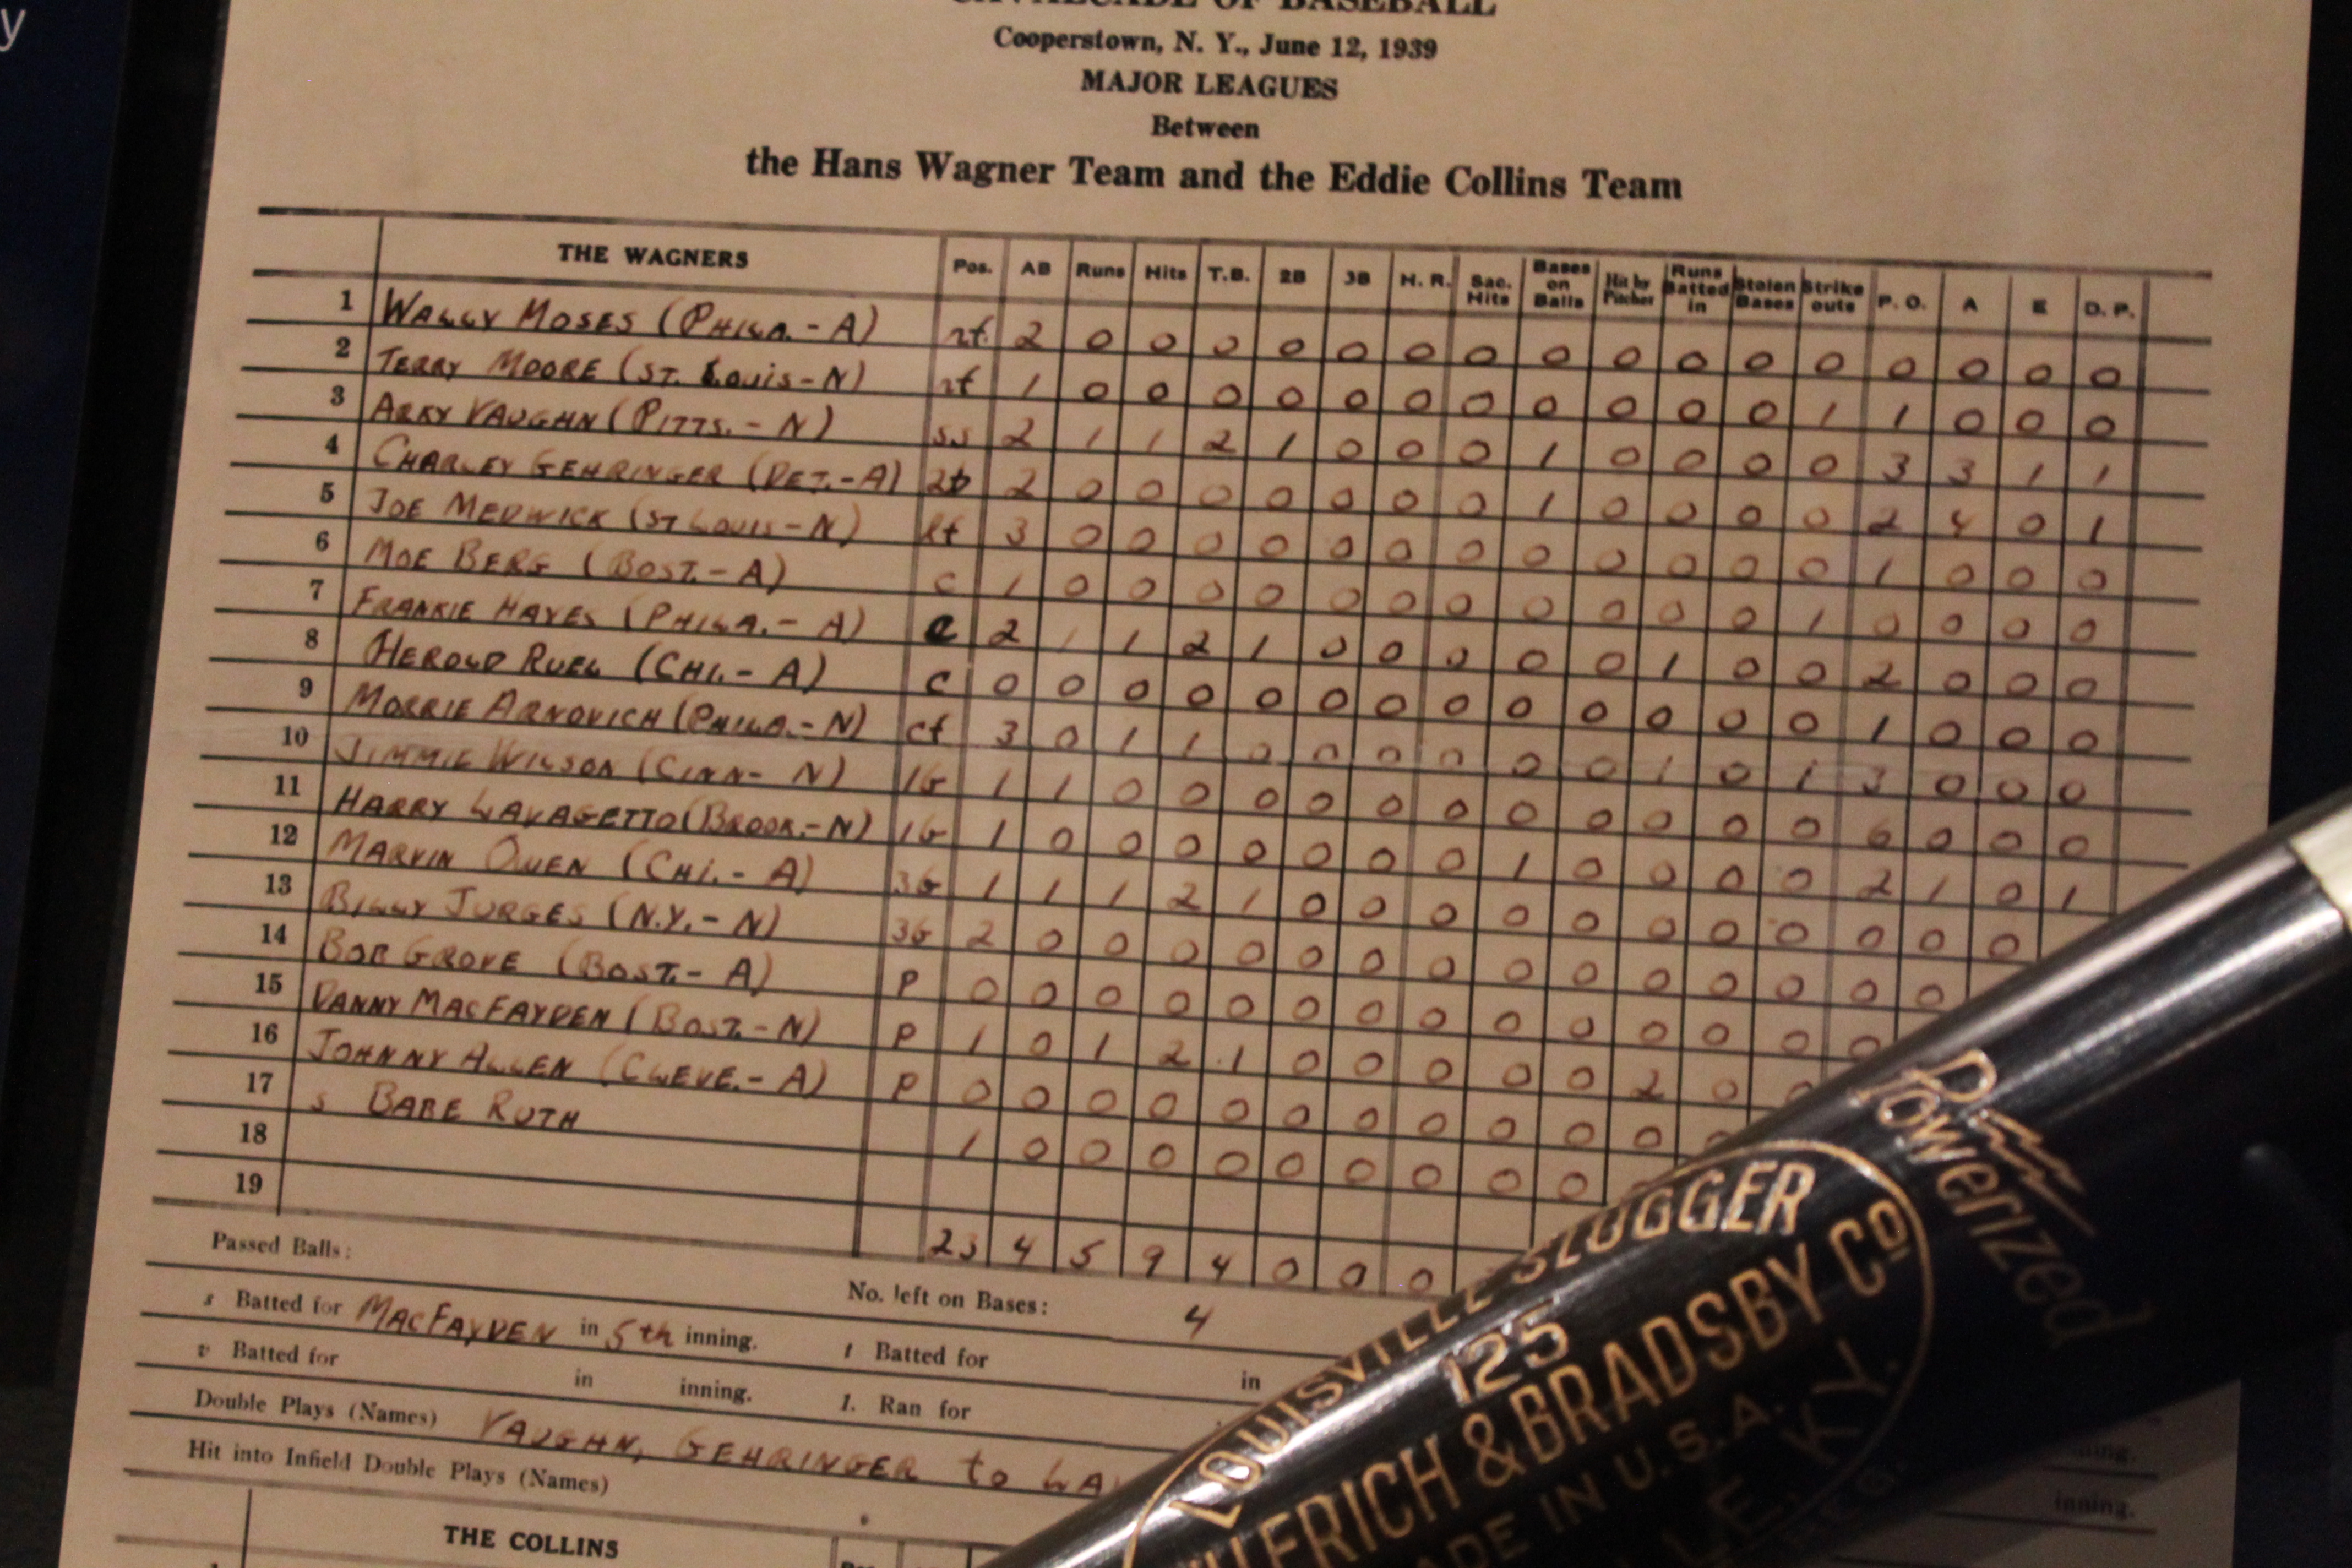 CAVALCADE OF BASEBALL
Cooperstown, N. Y., June 12, 1939
MAJOR LEAGUES
Between
the Hans Wagner Team and the Eddie Collins Team
THE WAGNERS Pos. AB Runs Hits T.B. 2B 3B H. R. Sac. Hits Bases on Balls Hit by Pitcher Runs Batted in Stolen Bases Strike outs P. O. A E D. P.
1 WALLY MOSES (PHILA.-A) rf. 2 0 0 0 0 0 0 0 0 0 0 0 0 0 0 0 0
2 TERRY MOORE (ST. LOUIS-N) rf 1 0 0 0 0 0 0 0 0 0 0 0 1 1 0 0 0
3 ARKY VAUGHN (PITTS.-N) ss 2 1 1 2 1 0 0 0 1 0 0 0 0 3 3 1 1
4 CHARLEY GEHRINGER (DET.-A) 2b 2 0 0 0 0 0 0 0 1 0 0 0 0 2 4 0 1
5 JOE MEDWICK (ST LOUIS-N) lf 3 0 0 0 0 0 0 0 0 0 0 0 0 1 0 0 0
6 MOE BERG (BOST.-A) c 1 0 0 0 0 0 0 0 0 0 0 0 1 0 0 0 0
7 FRANKIE HAYES (PHILA.-A) c 2 1 1 2 1 0 0 0 0 0 1 0 0 2 0 0 0
8 HEROLD RUEL (CHI.-A) c 0 0 0 0 0 0 0 0 0 0 0 0 0 1 0 0 0
9 MORRIE ARNOVICH (PHILA.-N) cf 3 0 1 1 0 0 0 0 0 0 1 0 1 3 0 0 0
10 JIMMIE WILSON (CINN-N) 1b 1 1 0 0 0 0 0 0 0 0 0 0 0 6 0 0 0
11 HARRY LAVAGETTO (BROOK.-N) 1b 1 0 0 0 0 0 0 0 1 0 0 0 0 2 1 0 1
12 MARVIN OWEN (CHI.-A) 3b 1 1 1 2 1 0 0 0 0 0 0 0 0 0 0 0
13 BILLY JURGES (N.Y.-N) 3b 2 0 0 0 0 0 0 0 0 0 0 0 0 0 0
14 BOB GROVE (BOST.-A) P 0 0 0 0 0 0 0 0 0 0 0 0 0 0
15 DANNY MACFAYDEN (BOST.-N) P 1 0 1 2 1 0 0 0 0 0 2 0 0
16 JOHNNY ALLEN (CLEVE.-A) P 0 0 0 0 0 0 0 0 0 0 0
17 s BABE RUTH 1 0 0 0 0 0 0 0 0 0
18
19
23 4 5 9 4 0 0 0
Passed Balls: No. left on Bases: 4
s Batted for MACFAYDEN in 5th inning. t Batted for in
v Batted for in inning. l. Ran for
Double Plays (Names) VAUGHN, GEHRINGER to LA
Hit into Infield Double Plays (Names)
inning.
THE COLLINS
Powerized
LOUISVILLE SLUGGER
125
& BRADSBY CO
MADE IN U.S.A.
KY.